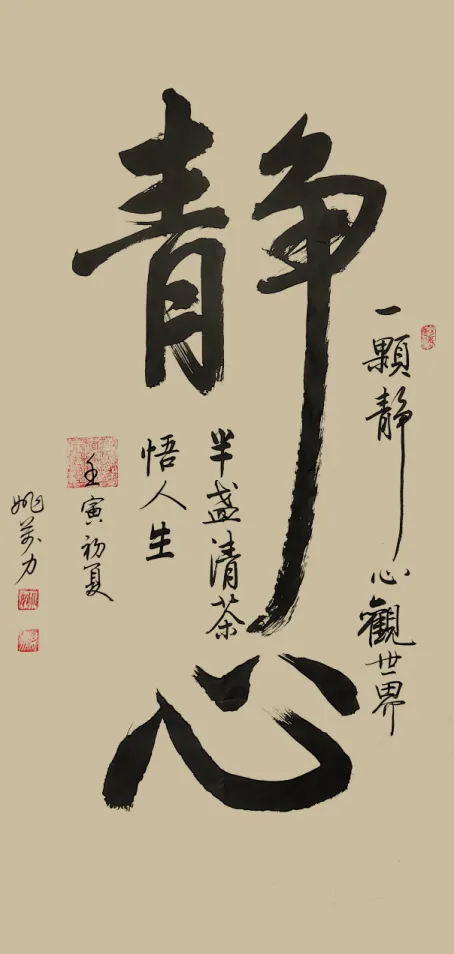 静心
一顆静心觀世界
半盏清茶
悟人生
壬寅初夏
姚万力